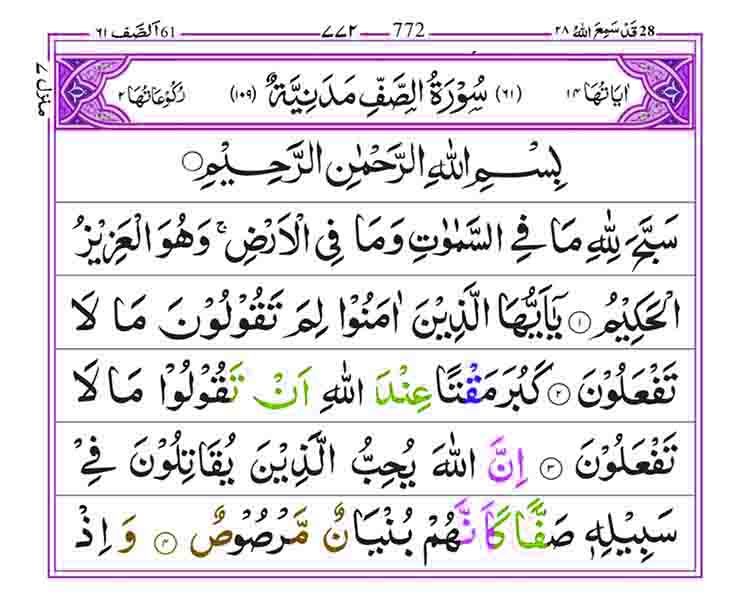 قَدْ سَمِعَ اللّٰهُ ٢٨ 28 772 ٧٧٢ اَلصَّف ٦١ 61
اٰيَاتُهَا ١٤ (٦١) سُوْرَةُ الصَّفِّ مَدَنِيَّةٌ (١٠٩) رُكُوْعَاتُهَا ٢
منزل ٧
بِسْمِ اللّٰهِ الرَّحْمٰنِ الرَّحِيْمِ○
سَبَّحَ لِلّٰهِ مَا فِي السَّمٰوٰتِ وَمَا فِي الْاَرْضِ ۚ وَهُوَ الْعَزِيْزُ
الْحَكِيْمُ ١ يٰۤاَيُّهَا الَّذِيْنَ اٰمَنُوْا لِمَ تَقُوْلُوْنَ مَا لَا
تَفْعَلُوْنَ ٢ كَبُرَ مَقْتًا عِنْدَ اللّٰهِ اَنْ تَقُوْلُوْا مَا لَا
تَفْعَلُوْنَ ٣ اِنَّ اللّٰهَ يُحِبُّ الَّذِيْنَ يُقَاتِلُوْنَ فِيْ
سَبِيْلِهٖ صَفًّا كَاَنَّهُمْ بُنْيَانٌ مَّرْصُوْصٌ ٤ وَاِذْ